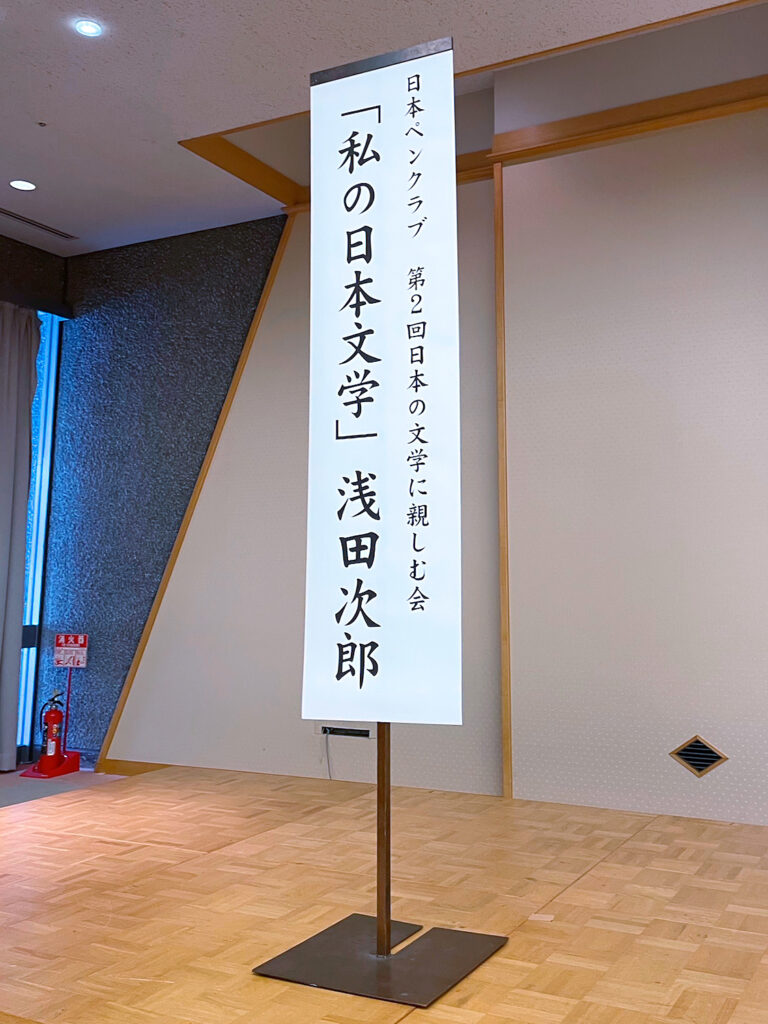 日本ペンクラブ　第2回日本の文学に親しむ会
「私の日本文学」浅田次郎
消火器